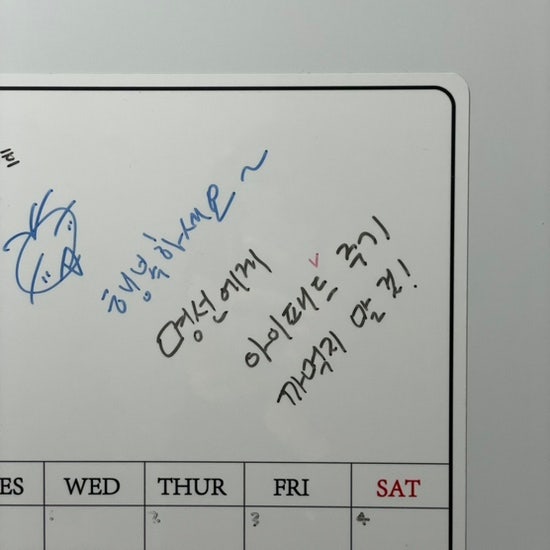 행복하세요~
명선에게
아이패드 주기
까먹지 말 것!
ES WED THUR FRI SAT
1 2 3 4